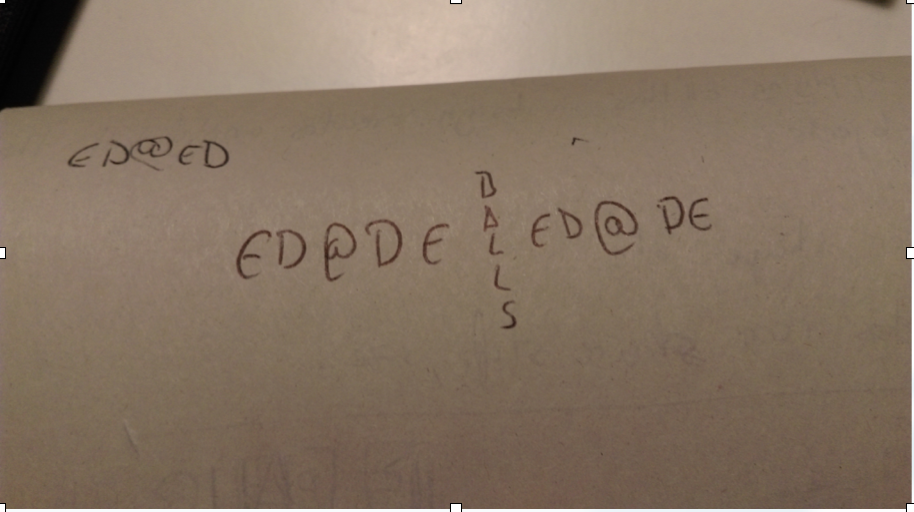 ED@ED
ED@DE BALLS ED@DE